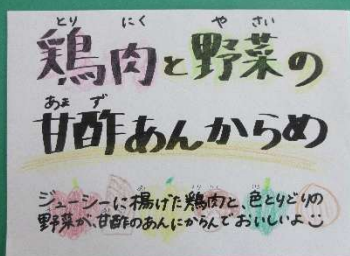 とり にく や さい
鶏肉と野菜の
あま ず
甘酢あんからめ
ジューシーに揚げた鶏肉と、色とりどりの
野菜が、甘酢のあんにからんでおいしいよ